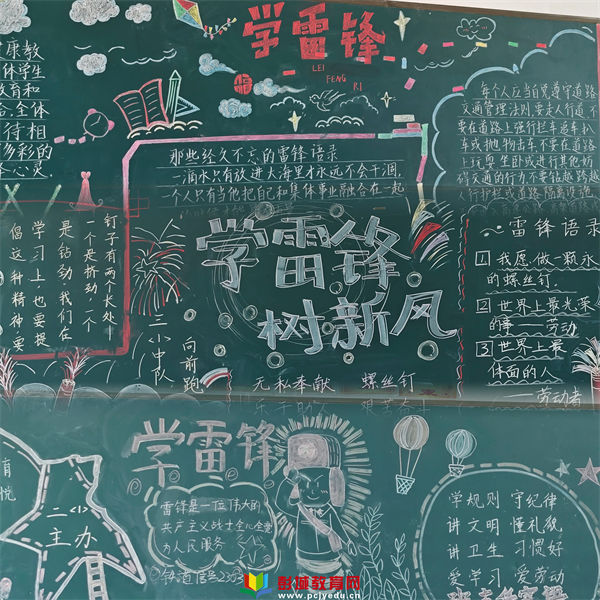 学雷锋
LEI FENG RI
康教
体学生
教育和
全体
待相
多彩的
心灵
那些经久不忘的雷锋语录
一滴水只有放进大海里才永远不会干涸,
个人只有当他把自己和集体事业融合在一起
每个人应当自觉遵守道路
交通管理法则,要走人行道,不
要在道路上强行拦车追车扒
车或抛物击车不要在道路
上玩耍坐卧或进行其他妨
碍交通的行为不要钻越跨越
人行护栏或道路隔离设施
钉子有两个长处
一个是挤劲一个
是钻劲,我们在
学习上也要提
倡这种精神,要
学雷锋
树新风
二小中队
向前跑
无私奉献 螺丝钉
雷锋语录
1 我愿做一颗永
的螺丝钉
2 世界上最光荣
的事——劳动
3 世界上最
体面的人
——劳动者
学雷锋
二(小)
主办
雷锋是一位伟大的
共产主义战士全心全意
为人民服务
学规则 守纪律
讲文明 懂礼貌
讲卫生 习惯好
爱学习 爱劳动
彭城教育网
www.pcjyedu.cn